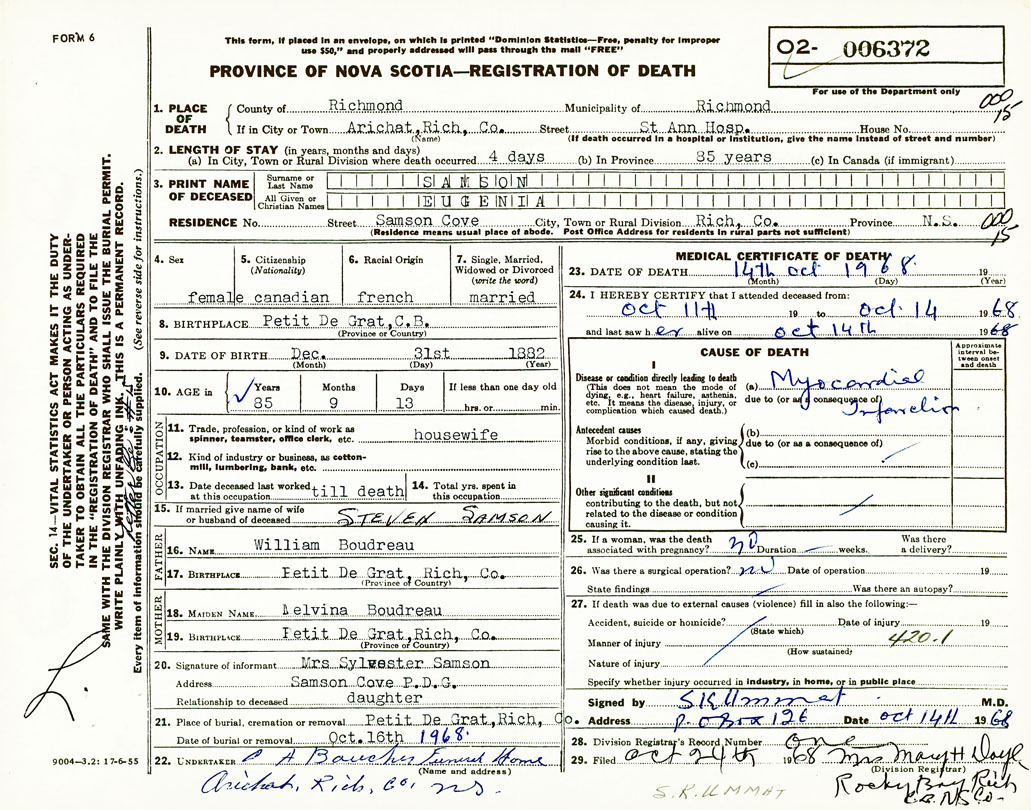 FORM 6
This form, if placed in an envelope, on which is printed "Dominion Statistics—Free, penalty for improper
use $50," and properly addressed will pass through the mail "FREE"
PROVINCE OF NOVA SCOTIA—REGISTRATION OF DEATH
O2- 006372
For use of the Department only
1. PLACE OF DEATH County of Richmond Municipality of Richmond
000 15
If in City or Town Arichat,Rich, Co. Street St Ann Hosp. House No.
(Name) (If death occurred in a hospital or institution, give the name instead of street and number)
2. LENGTH OF STAY (in years, months and days)
(a) In City, Town or Rural Division where death occurred 4 days (b) In Province 85 years (c) In Canada (if immigrant)
3. PRINT NAME OF DECEASED
Surname or Last Name SAMSON
All Given or Christian Names EUGENIA
RESIDENCE No. Street Samson Cove City, Town or Rural Division Rich, Co. Province N.S.
000 15
(Residence means usual place of abode. Post Office Address for residents in rural parts not sufficient)
4. Sex female
5. Citizenship (Nationality) canadian
6. Racial Origin french
7. Single, Married, Widowed or Divorced (write the word) married
8. BIRTHPLACE Petit De Grat,C.B.
(Province or Country)
9. DATE OF BIRTH Dec. 31st 1882
(Month) (Day) (Year)
10. AGE in Years 85 Months 9 Days 13 If less than one day old
hrs. or min.
OCCUPATION
11. Trade, profession, or kind of work as spinner, teamster, office clerk, etc. housewife
12. Kind of industry or business, as cotton-mill, lumbering, bank, etc.
13. Date deceased last worked at this occupation till death 14. Total yrs. spent in this occupation
15. If married give name of wife or husband of deceased STEVEN SAMSON
FATHER
16. NAME William Boudreau
17. BIRTHPLACE Petit De Grat, Rich, Co.
(Province or Country)
MOTHER
18. MAIDEN NAME Melvina Boudreau
19. BIRTHPLACE Petit De Grat,Rich, Co.
(Province or Country)
20. Signature of informant Mrs Sylvester Samson
Address Samson Cove P.D.G.
Relationship to deceased daughter
21. Place of burial, cremation or removal Petit De Grat,Rich, Co.
Date of burial or removal Oct.16th 1968.
22. UNDERTAKER C A Boucher Funeral Home
(Name and address)
Arichat, Rich, Co, N.S.
MEDICAL CERTIFICATE OF DEATH
23. DATE OF DEATH 14th oct 1968. 19
(Month) (Day) (Year)
24. I HEREBY CERTIFY that I attended deceased from:
oct 11th 19 to oct. 14 1968.
and last saw her alive on oct 14th 1968
CAUSE OF DEATH
Approximate interval between onset and death
I
Disease or condition directly leading to death
(This does not mean the mode of dying, e.g., heart failure, asthenia, etc. It means the disease, injury, or complication which caused death.)
(a) Myocardial
due to (or as a consequence of)
Infarction
Antecedent causes
Morbid conditions, if any, giving rise to the above cause, stating the underlying condition last.
(b)
due to (or as a consequence of)
(c)
II
Other significant conditions
contributing to the death, but not related to the disease or condition causing it.
25. If a woman, was the death associated with pregnancy? no Duration weeks. Was there a delivery?
26. Was there a surgical operation? no Date of operation 19
State findings Was there an autopsy?
27. If death was due to external causes (violence) fill in also the following:—
Accident, suicide or homicide? Date of injury 19
(State which)
Manner of injury 420.1
(How sustained)
Nature of injury
Specify whether injury occurred in industry, in home, or in public place
Signed by S K Ummat M.D.
Address P.O Box 126 Date oct 14th 1968
28. Division Registrar's Record Number One
29. Filed Oct 24th 1968 Mrs Mary H Doyle
(Division Registrar)
Rocky Bay Rich
Co.
S.K.UMMAT
9004—3.2: 17-6-55
SEC. 14—VITAL STATISTICS ACT MAKES IT THE DUTY
OF THE UNDERTAKER OR PERSON ACTING AS UNDER-
TAKER TO OBTAIN ALL THE PARTICULARS REQUIRED
IN THE "REGISTRATION OF DEATH" AND TO FILE THE
SAME WITH THE DIVISION REGISTRAR WHO SHALL ISSUE THE BURIAL PERMIT.
WRITE PLAINLY WITH UNFADING INK. THIS IS A PERMANENT RECORD.
Every item of information should be carefully supplied. (See reverse side for instructions.)